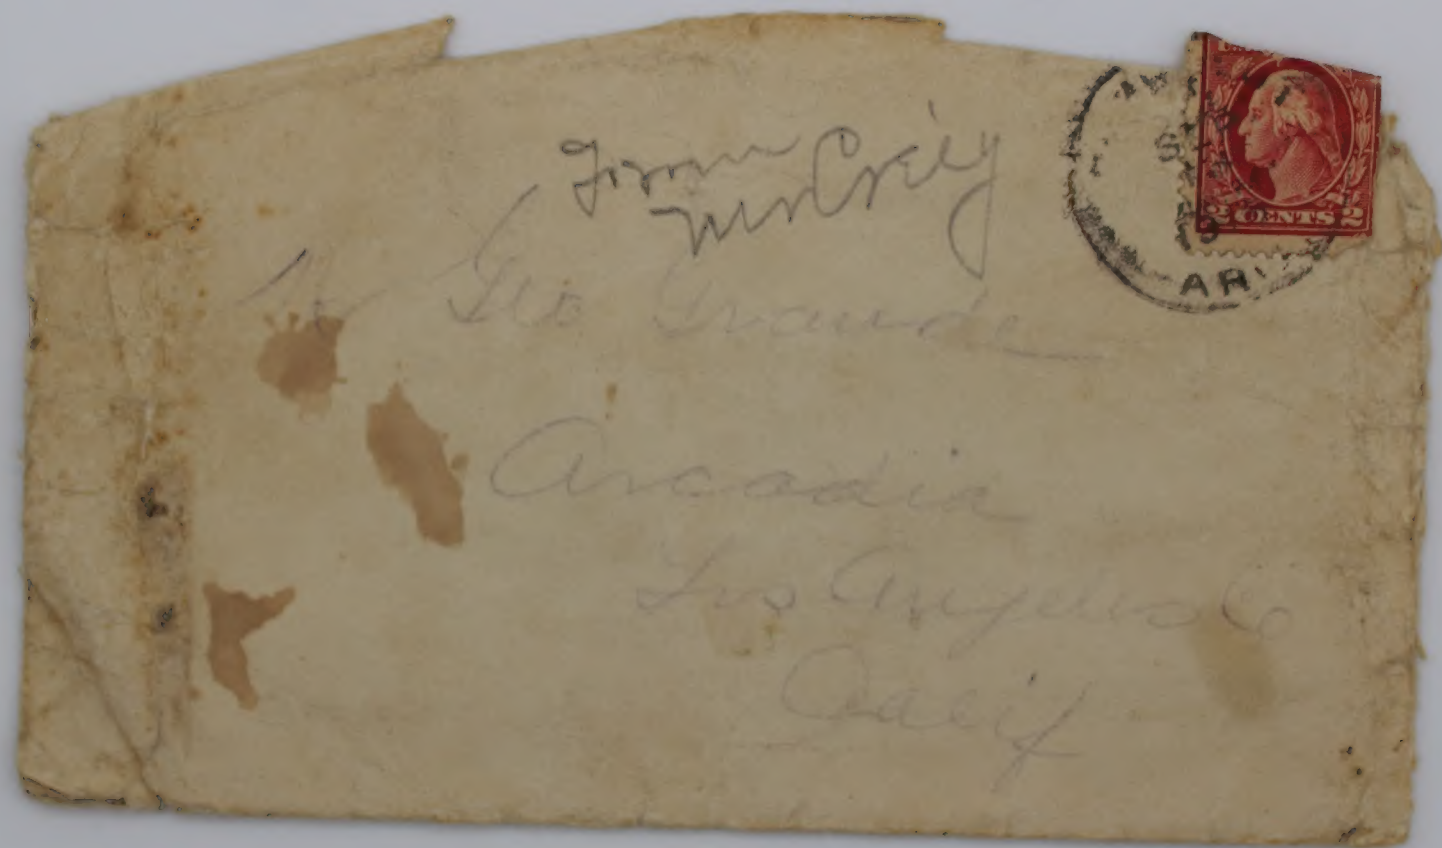 From
Mr Creig
Mr Geo Grande
Arcadia
Los Angeles Co
Calif
2 CENTS 2